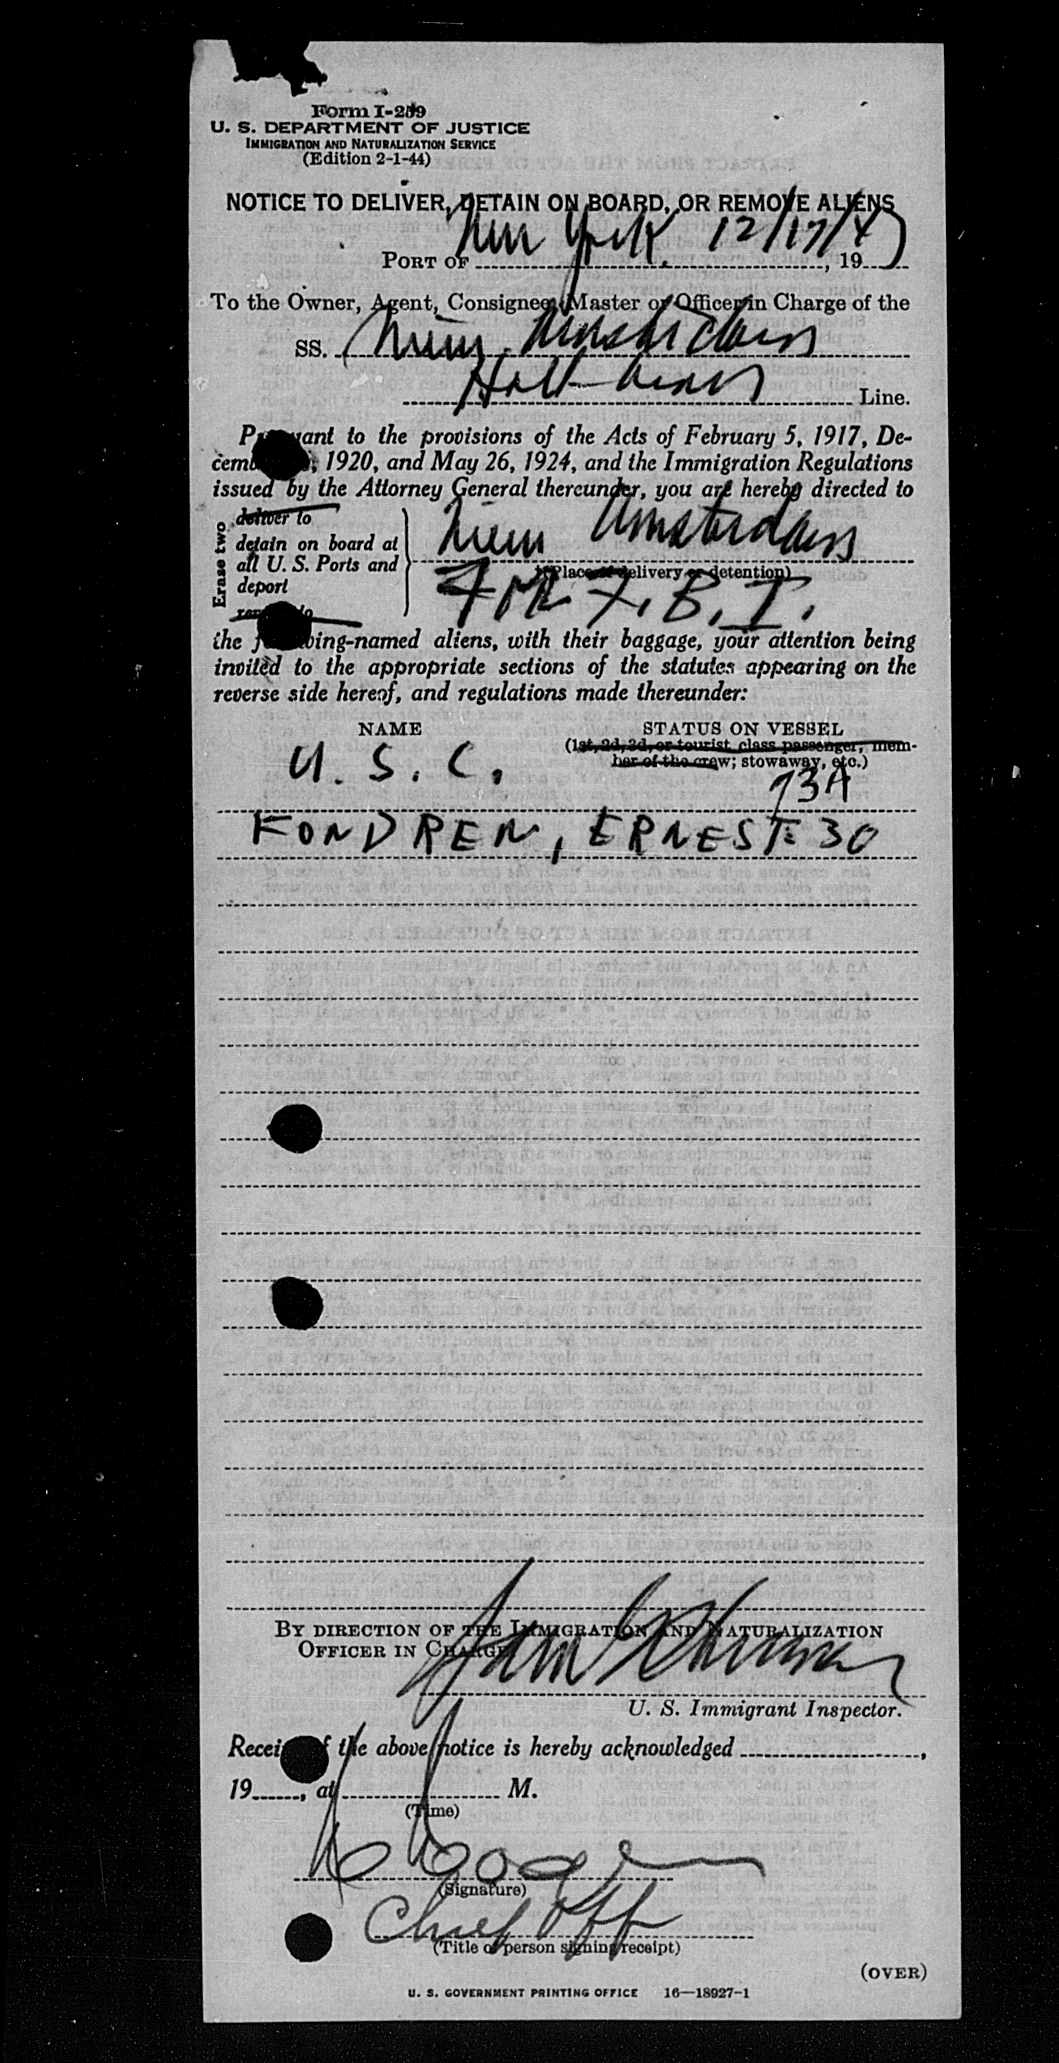 Form I-259
U. S. DEPARTMENT OF JUSTICE
IMMIGRATION AND NATURALIZATION SERVICE
(Edition 2-1-44)
NOTICE TO DELIVER, DETAIN ON BOARD, OR REMOVE ALIENS
PORT OF New York, 12/17/47, 19
To the Owner, Agent, Consignee, Master or Officer in Charge of the
SS. Nieuw Amsterdam
Holl-Amer Line.
Pursuant to the provisions of the Acts of February 5, 1917, De-
cember 1920, and May 26, 1924, and the Immigration Regulations
issued by the Attorney General thereunder, you are hereby directed to
Erase two
deliver to
detain on board at
all U. S. Ports and
deport
remove to
Nieuw Amsterdam
(Place of delivery or detention)
F.B.I.
the following-named aliens, with their baggage, your attention being
invited to the appropriate sections of the statutes appearing on the
reverse side hereof, and regulations made thereunder:
NAME STATUS ON VESSEL
(1st, 2d, 3d, or tourist class passenger, mem-
ber of the crew; stowaway, etc.)
U. S. C. 73A
FONDREN, ERNEST 30
BY DIRECTION OF THE IMMIGRATION AND NATURALIZATION
OFFICER IN CHARGE
U. S. Immigrant Inspector.
Receipt of the above notice is hereby acknowledged ,
19 , at M.
(Time)
(Signature)
Chief Off
(Title of person signing receipt)
(OVER)
U. S. GOVERNMENT PRINTING OFFICE 16—18927-1